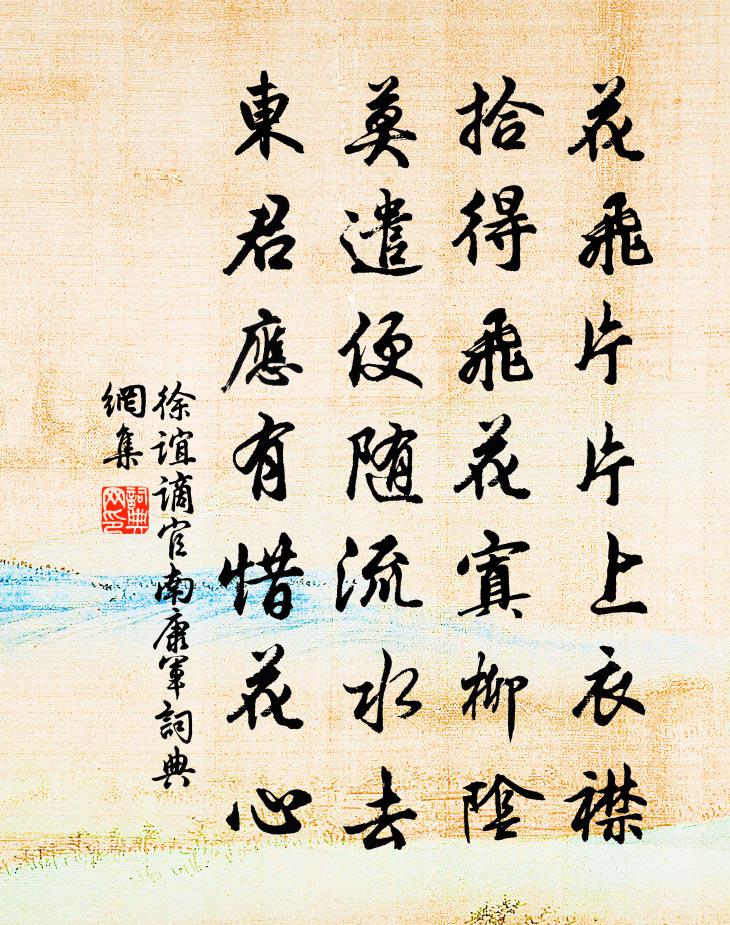 花飛片片上衣襟
拾得飛花寘柳陰
莫遣便随流水去
東君應有惜花心
徐誼謫官南康軍詞典
網集
詞典網印